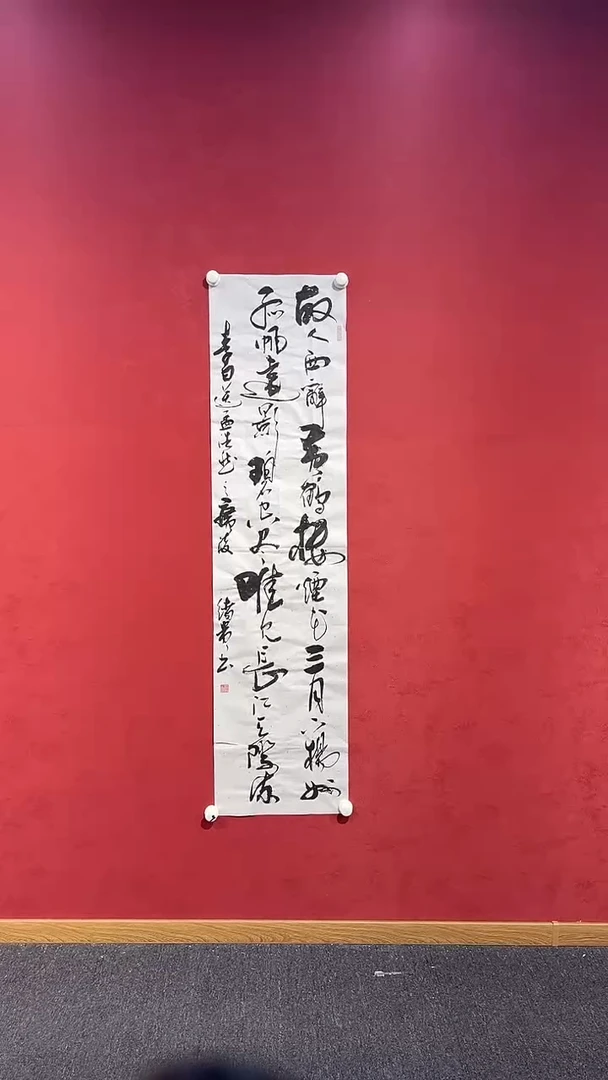 故人西辭黃鶴樓煙花三月下揚州
孤帆遠影碧空盡唯見長江天際流
李白送孟浩然之廣陵 书